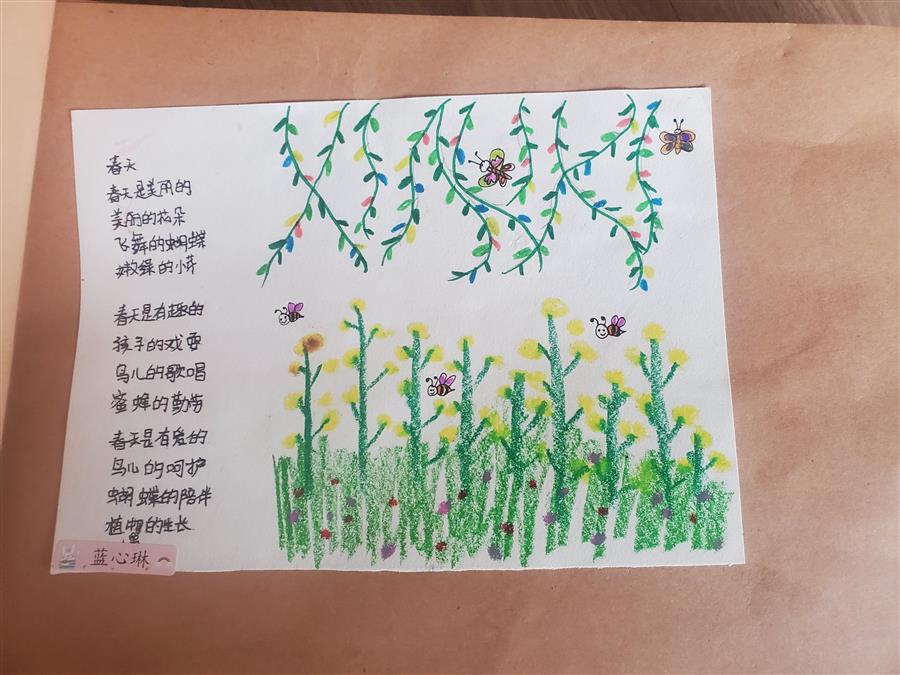 春天
春天是美丽的
美丽的花朵
飞舞的蝴蝶
嫩绿的小芽
春天是有趣的
孩子的戏耍
鸟儿的歌唱
蜜蜂的勤劳
春天是有爱的
鸟儿的呵护
蝴蝶的陪伴
植物的生长
蓝心琳